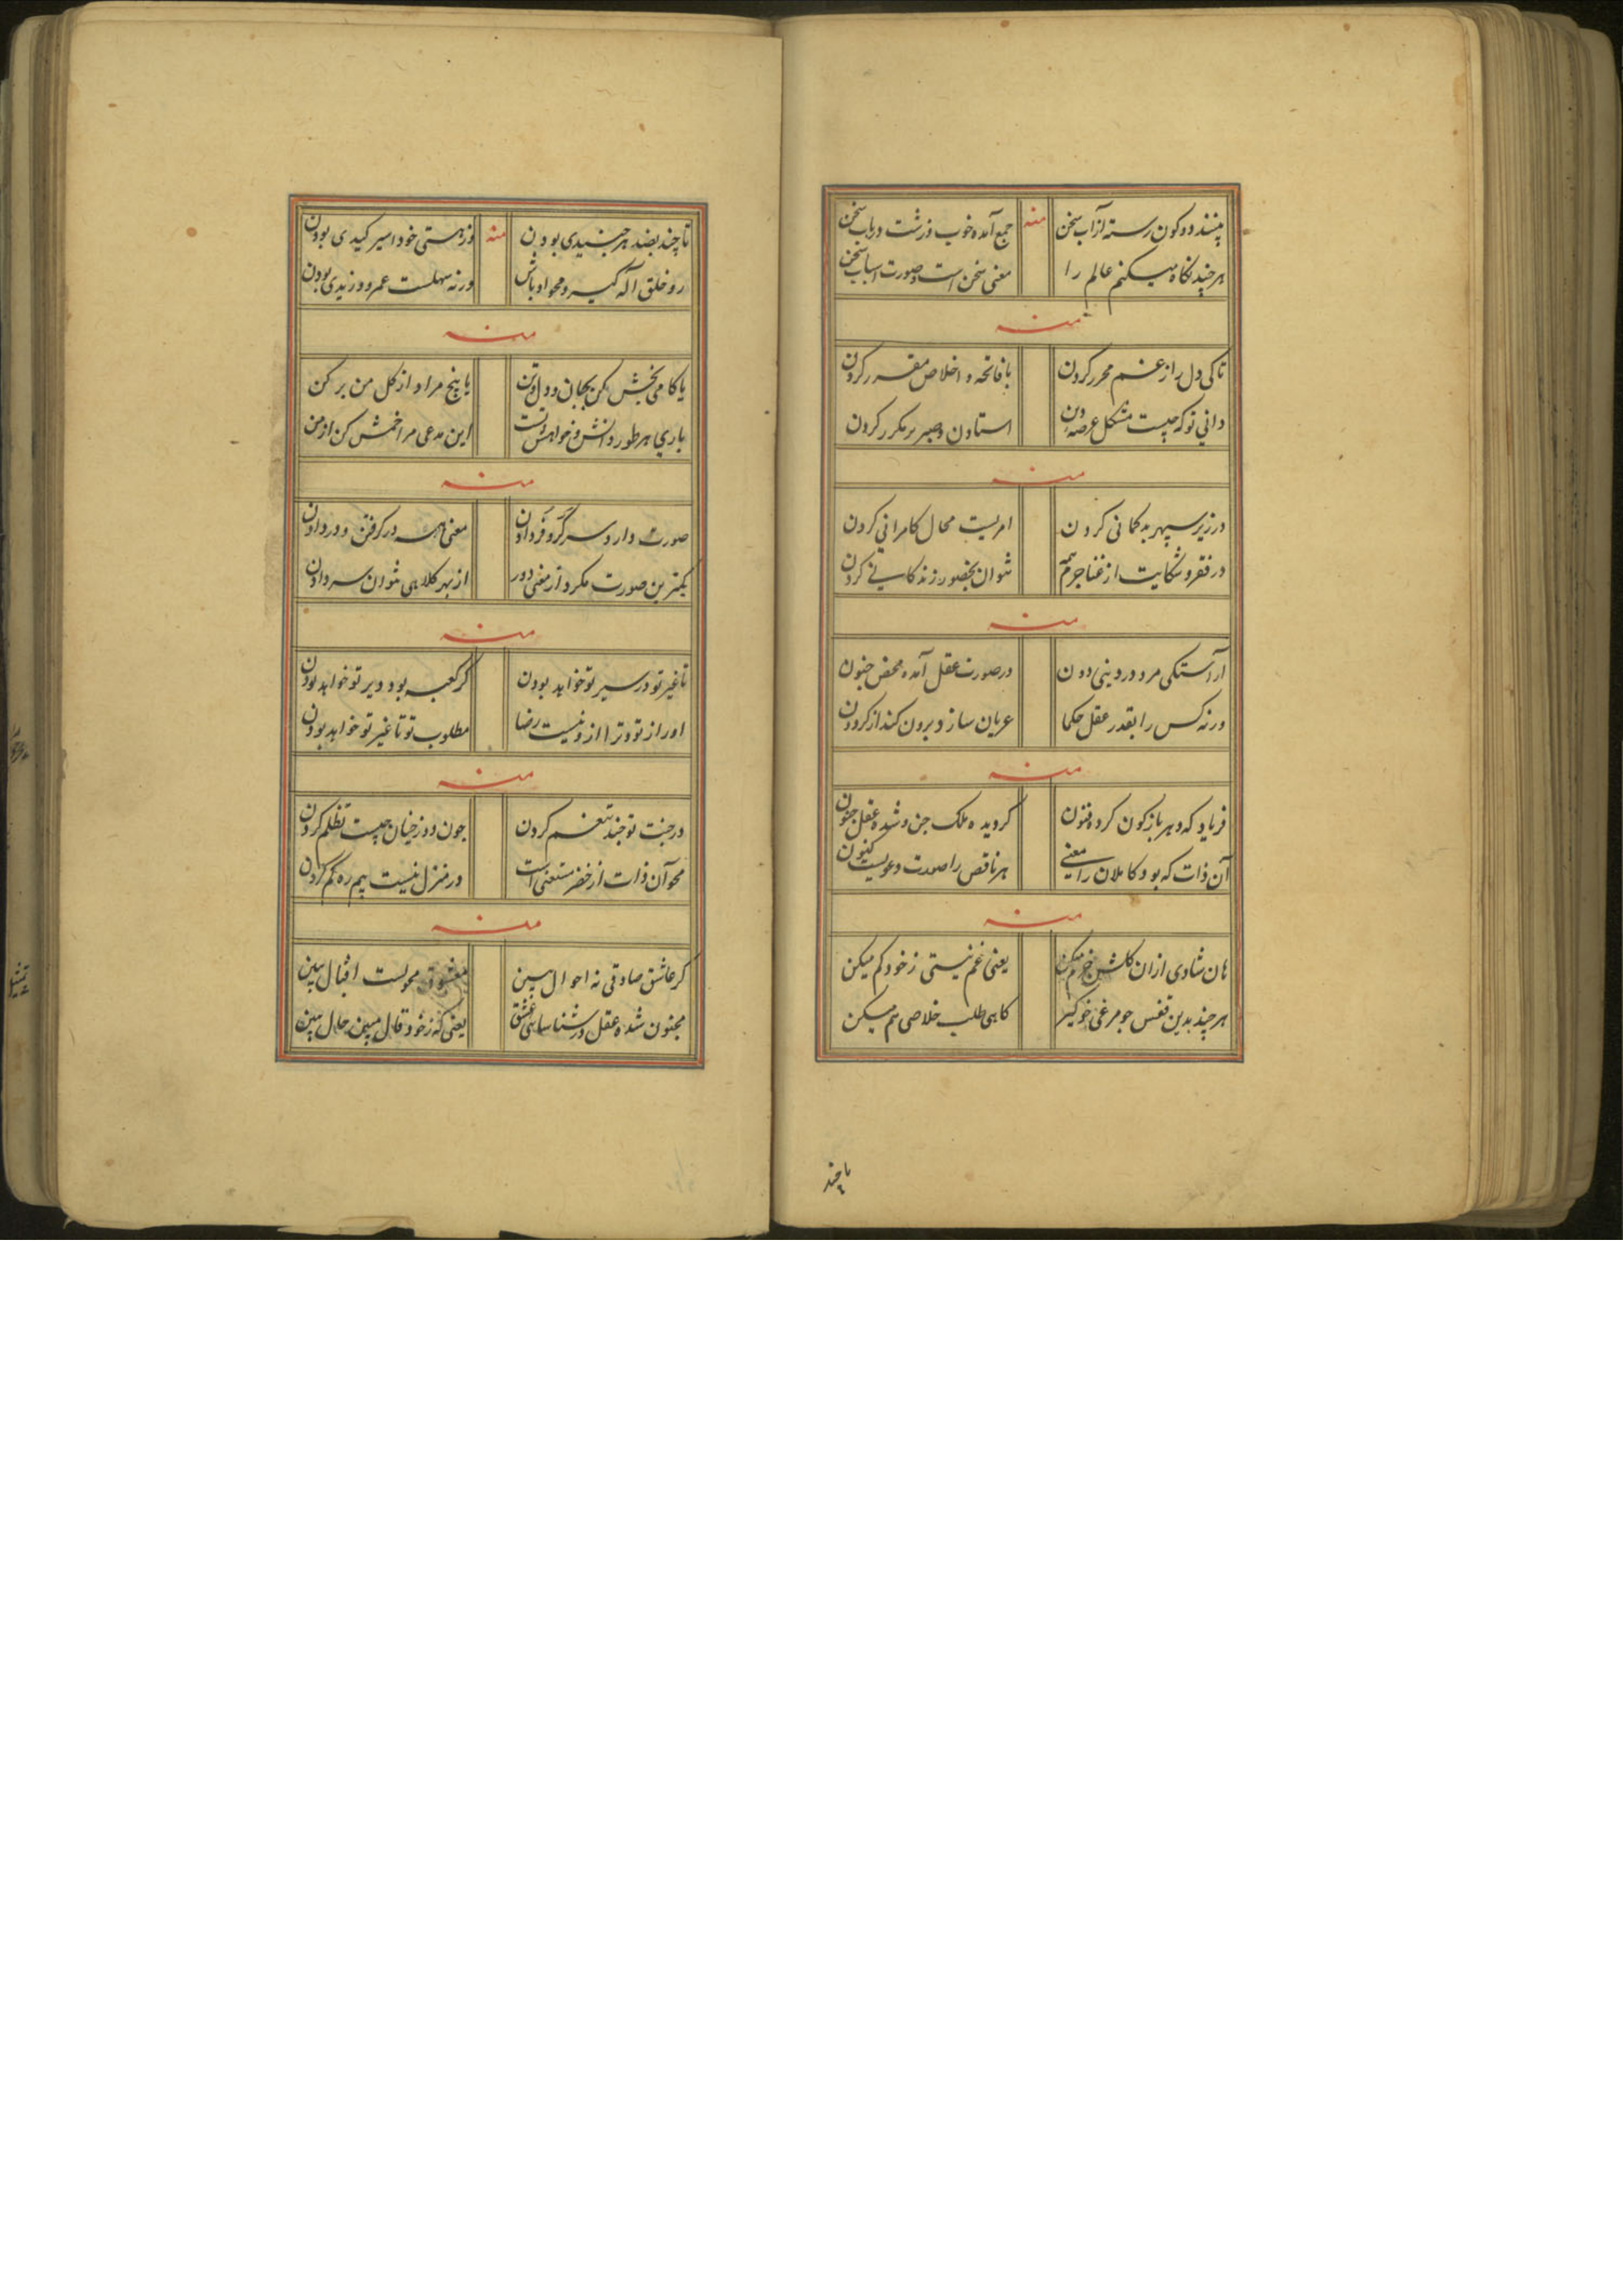 بینند دو کون رسته از آب سخن منه جمع آمده خوب و زشت در باب سخن
هر چند نگاه میکنم عالم را معنی سخن است و صورت اسباب سخن
منه
تا کی دل را ز غم محرر کردن با فاتحه و اخلاص مقرر کردن
دانی تو که چیست مشکل عرصه دون استادن و صبر بر مکرر کردن
منه
در زیر سپهر بدگمانی کردن امریست محال کامرانی کردن
در فقر و شکایت از غنا جرم همه نتوان بحضور زندگانی کردن
منه
آراستگی مرد در دینی دون در صورت عقل آمده محض جنون
ورنه کس را بقدر عقل حکما عریان سازد برون کند از گردون
منه
فریاد که دهر باژگون کرده فنون گردیده ملک جن و شده عقل جنون
آن ذات که بود کاملان را معنی هر ناقص را صورت دعویست کنون
منه
هان شادی ازان گلشن خرم میکن یعنی غم نیستی ز خود کم میکن
هر چند بدین قفس چو مرغی خوگیر گاهی طلب خلاصی هم میکن
تا چند
تا چند بضد هر جنیدی بودن منه وز هستی خود اسیر کیدی بودن
رو خلق آگه گیر و محو او باش ورنه سهلست عمرو و زیدی بودن
منه
یا کامی بخش بجان و دل و تن یا بیخ مراد از گل من بر کن
باری هر طور دانش و خواهش تست این مدعی مرا خمش کن از من
منه
صورت دارد سر گرو فر دادن معنی همه در گرفتن و در دادن
کمتر بن صورت مگرد از معنی دور از بهر کلاهی نتوان سر دادن
منه
تا غیر تو در سیر تو خواهد بودن گر کعبه بود دیر تو خواهد بودن
او را از تو و ترا ازو نیست رضا مطلوب تو تا غیر تو خواهد بودن
منه
در جنت تو چند تنعم کردن چون دوزخیان چیست تظلم کردن
محو آن ذات از خضر مستغنی است در منزل نیست بیم ره گم کردن
منه
گر عاشق صادقی نه احوال ببین معشوق محولست اقبال ببین
مجنون شده عقل در شناسایی عشق یعنی که ز خود قال مبین حال ببین